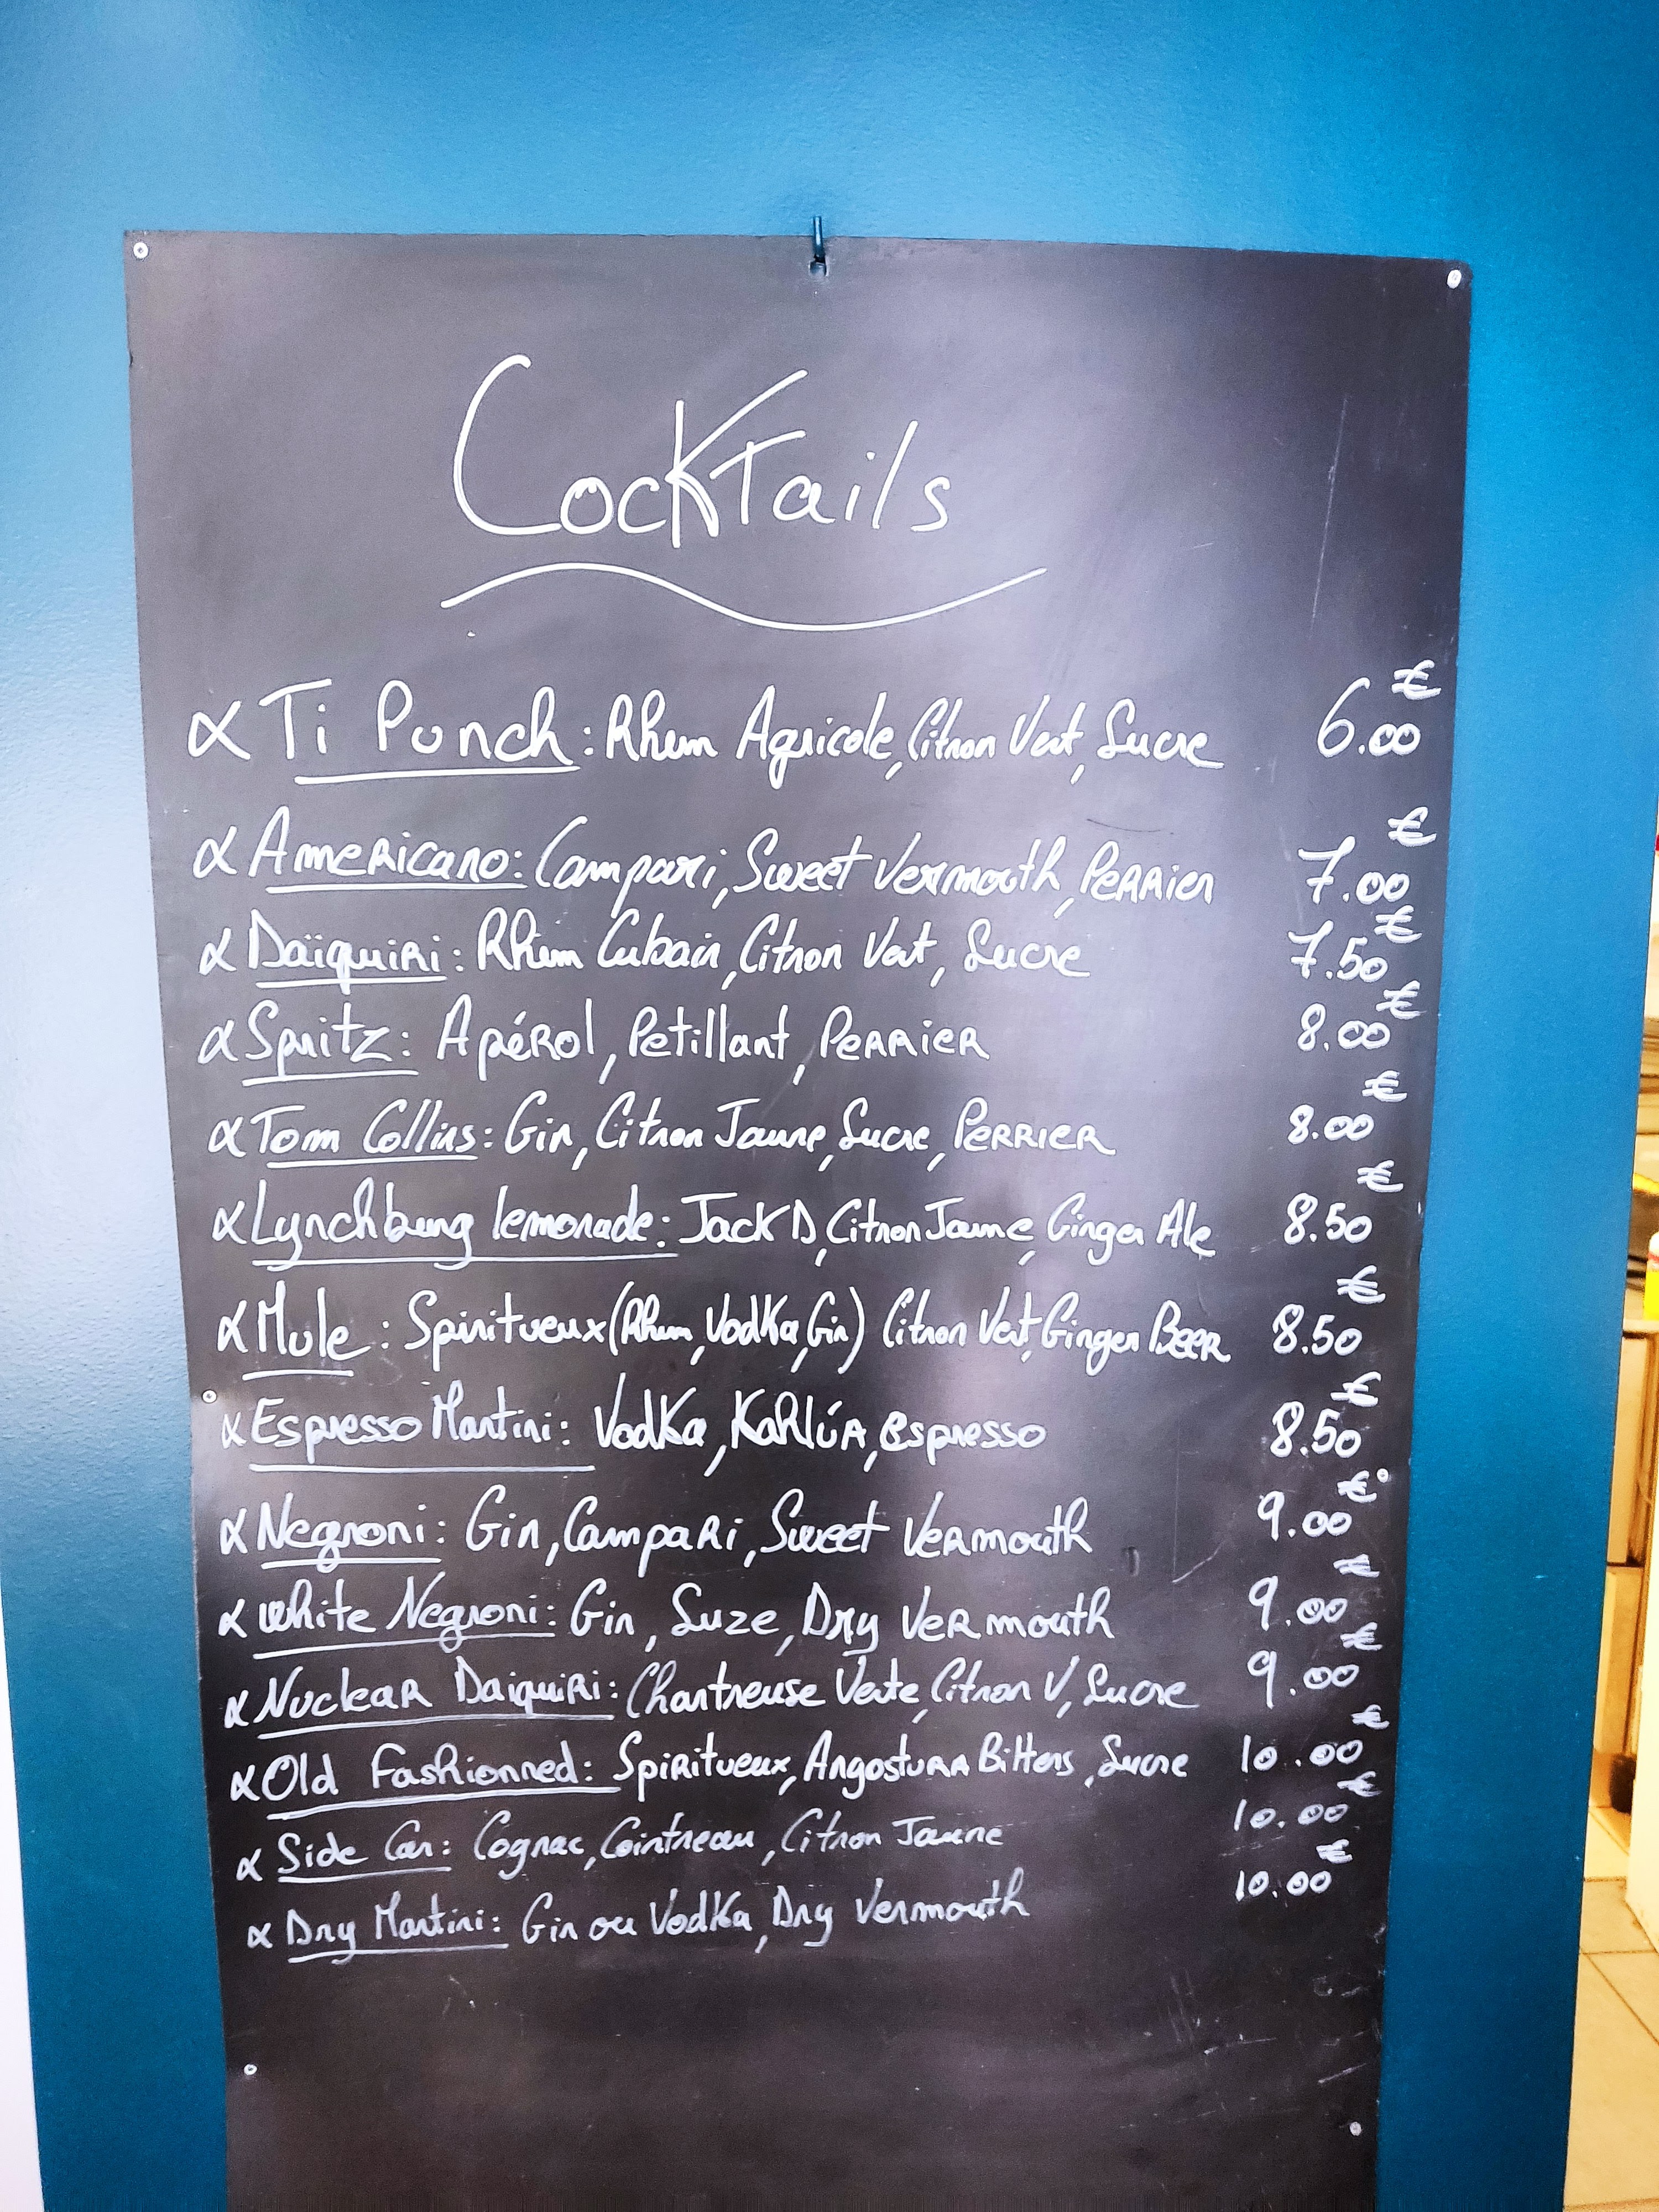 Cocktails
α Ti Punch : Rhum Agricole, Citron Vert, Sucre 6.00€
α Americano : Campari, Sweet Vermouth, Perrier 7.00€
α Daïquiri : Rhum Cubain, Citron Vert, Sucre 7.50€
α Spritz : Apérol, Petillant, Perrier 8.00€
α Tom Collins : Gin, Citron Jaune, Sucre, Perrier 8.00€
α Lynchburg lemonade : Jack D, Citron Jaune, Ginger Ale 8.50€
α Mule : Spiritueux (Rhum, Vodka, Gin) Citron Vert, Ginger Beer 8.50€
α Espresso Martini : Vodka, Kahlúa, espresso 8.50€
α Negroni : Gin, Campari, Sweet Vermouth 9.00€
α White Negroni : Gin, Suze, Dry Vermouth 9.00€
α Nuclear Daiquiri : Chartreuse Verte, Citron V, Sucre 9.00€
α Old Fashionned : Spiritueux, Angostura Bitters, Sucre 10.00€
α Side Car : Cognac, Cointreau, Citron Jaune 10.00€
α Dry Martini : Gin ou Vodka, Dry Vermouth 10.00€